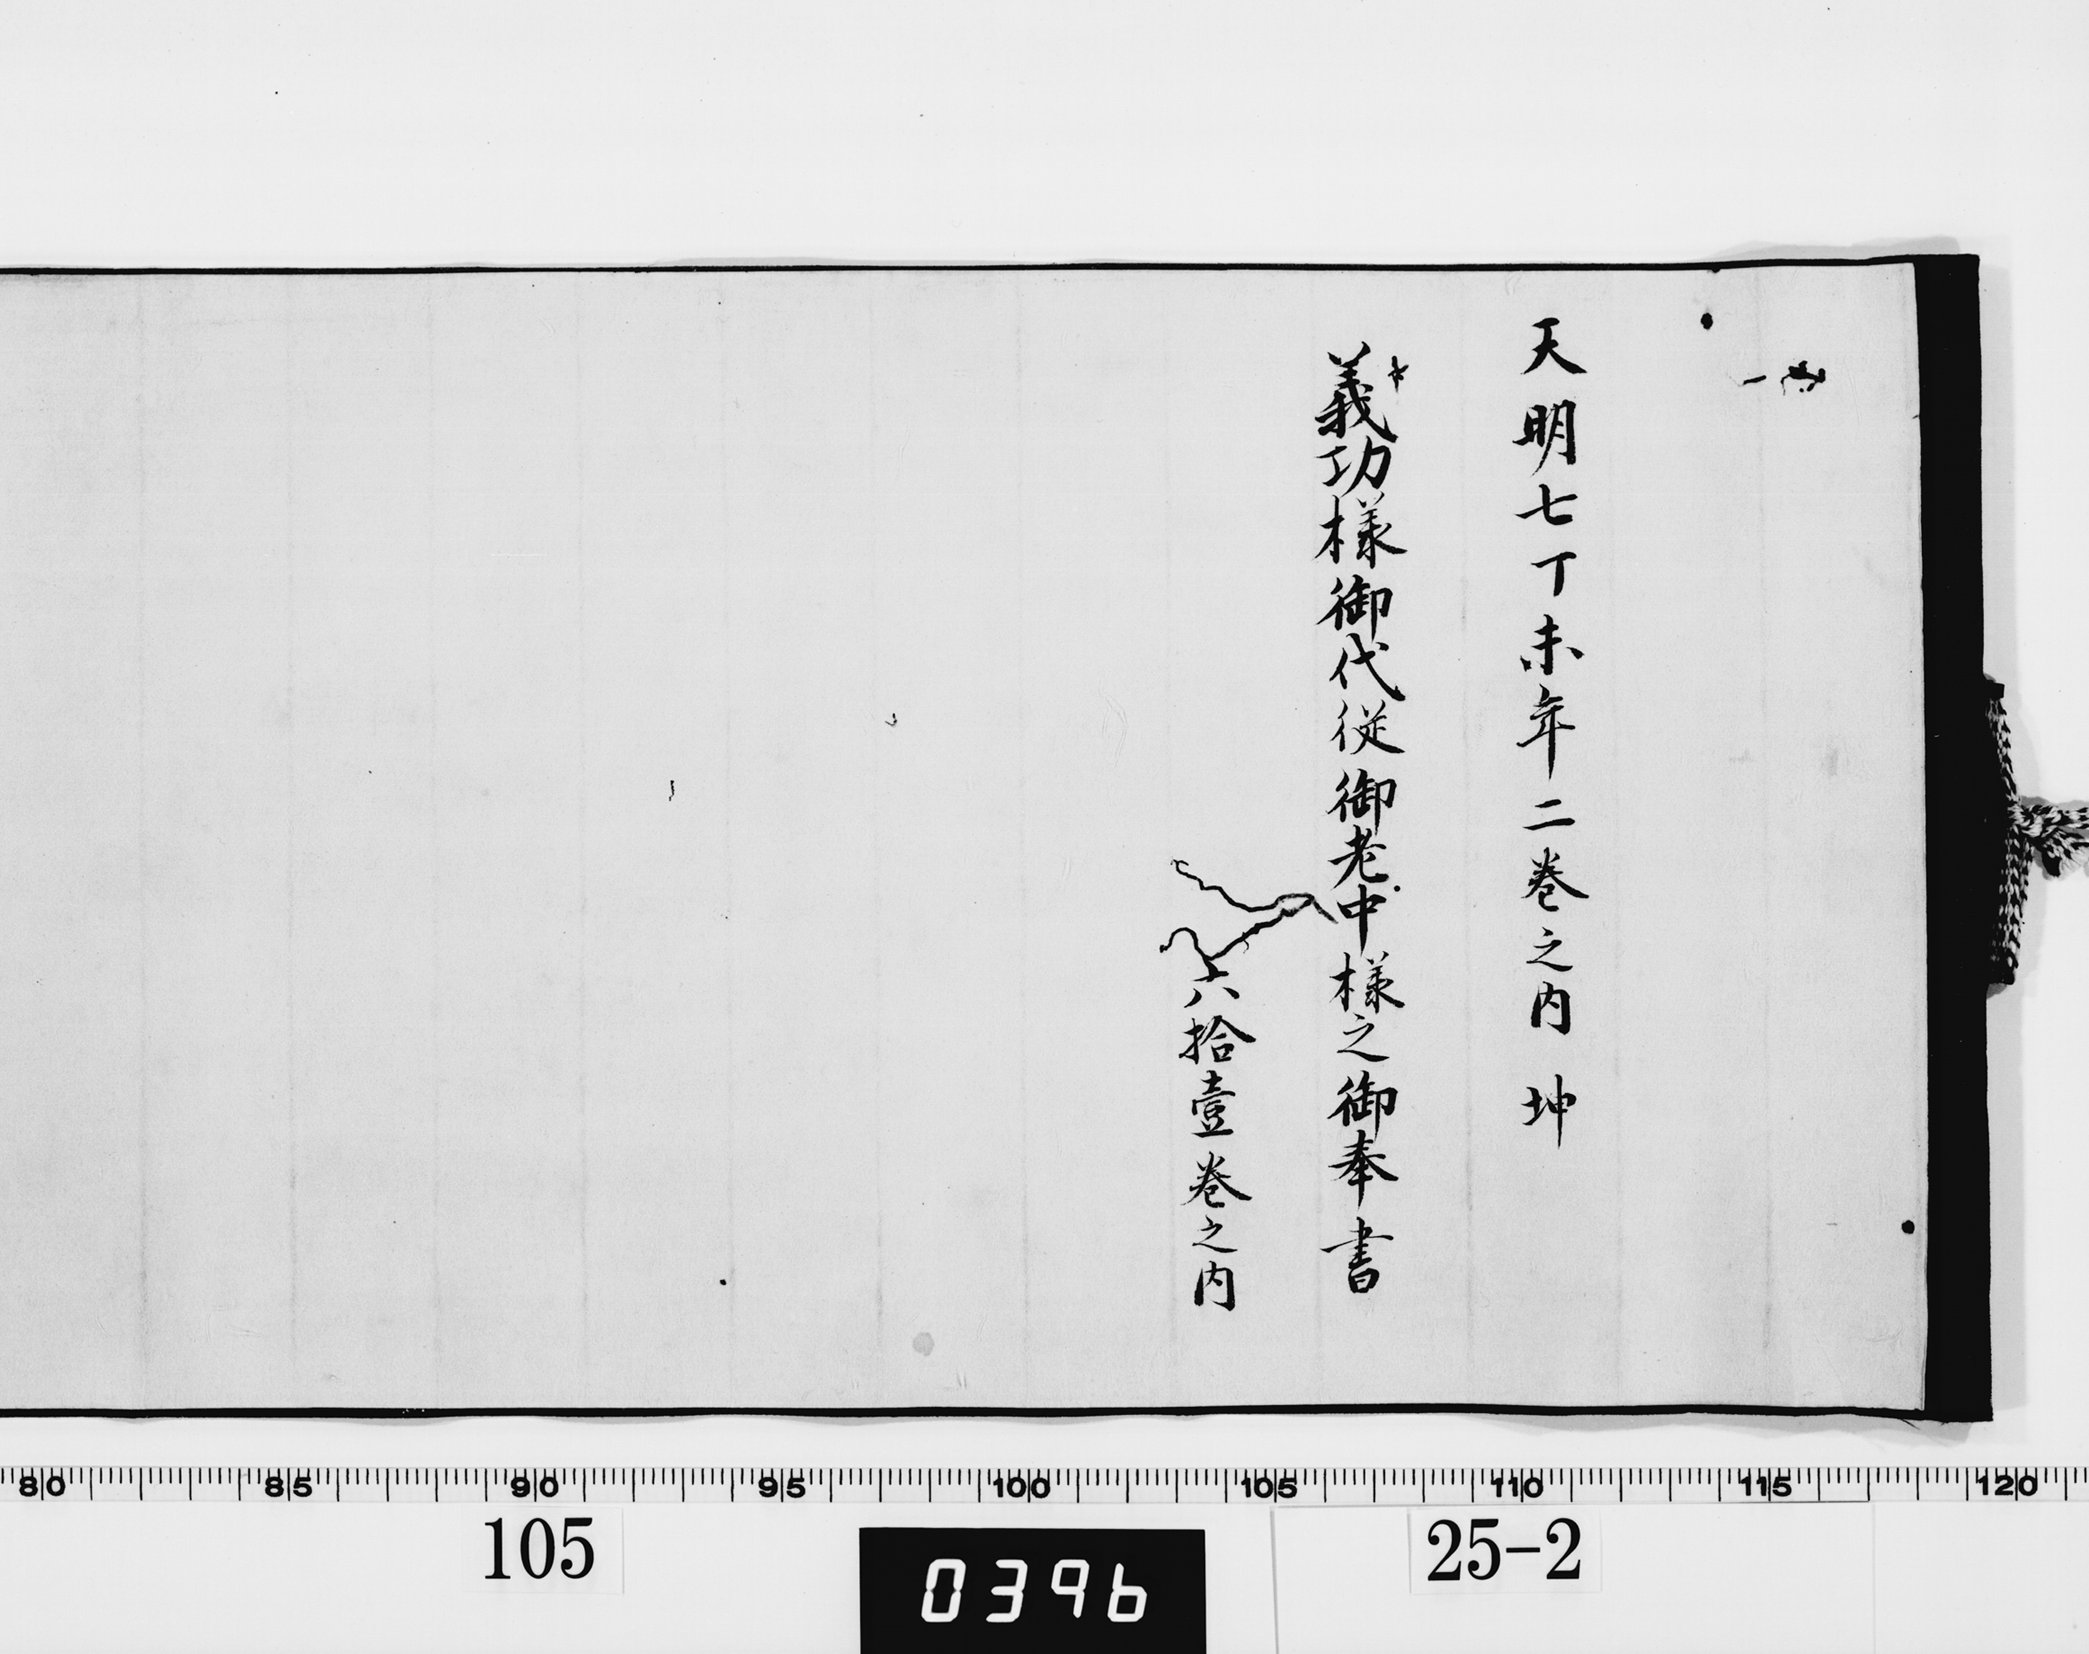 天明七丁未年二巻之内　坤
義功様御代従御老中様之御奉書
六拾壹巻之内
80 85 90 95 100 105 110 115 120
105
0396
25-2